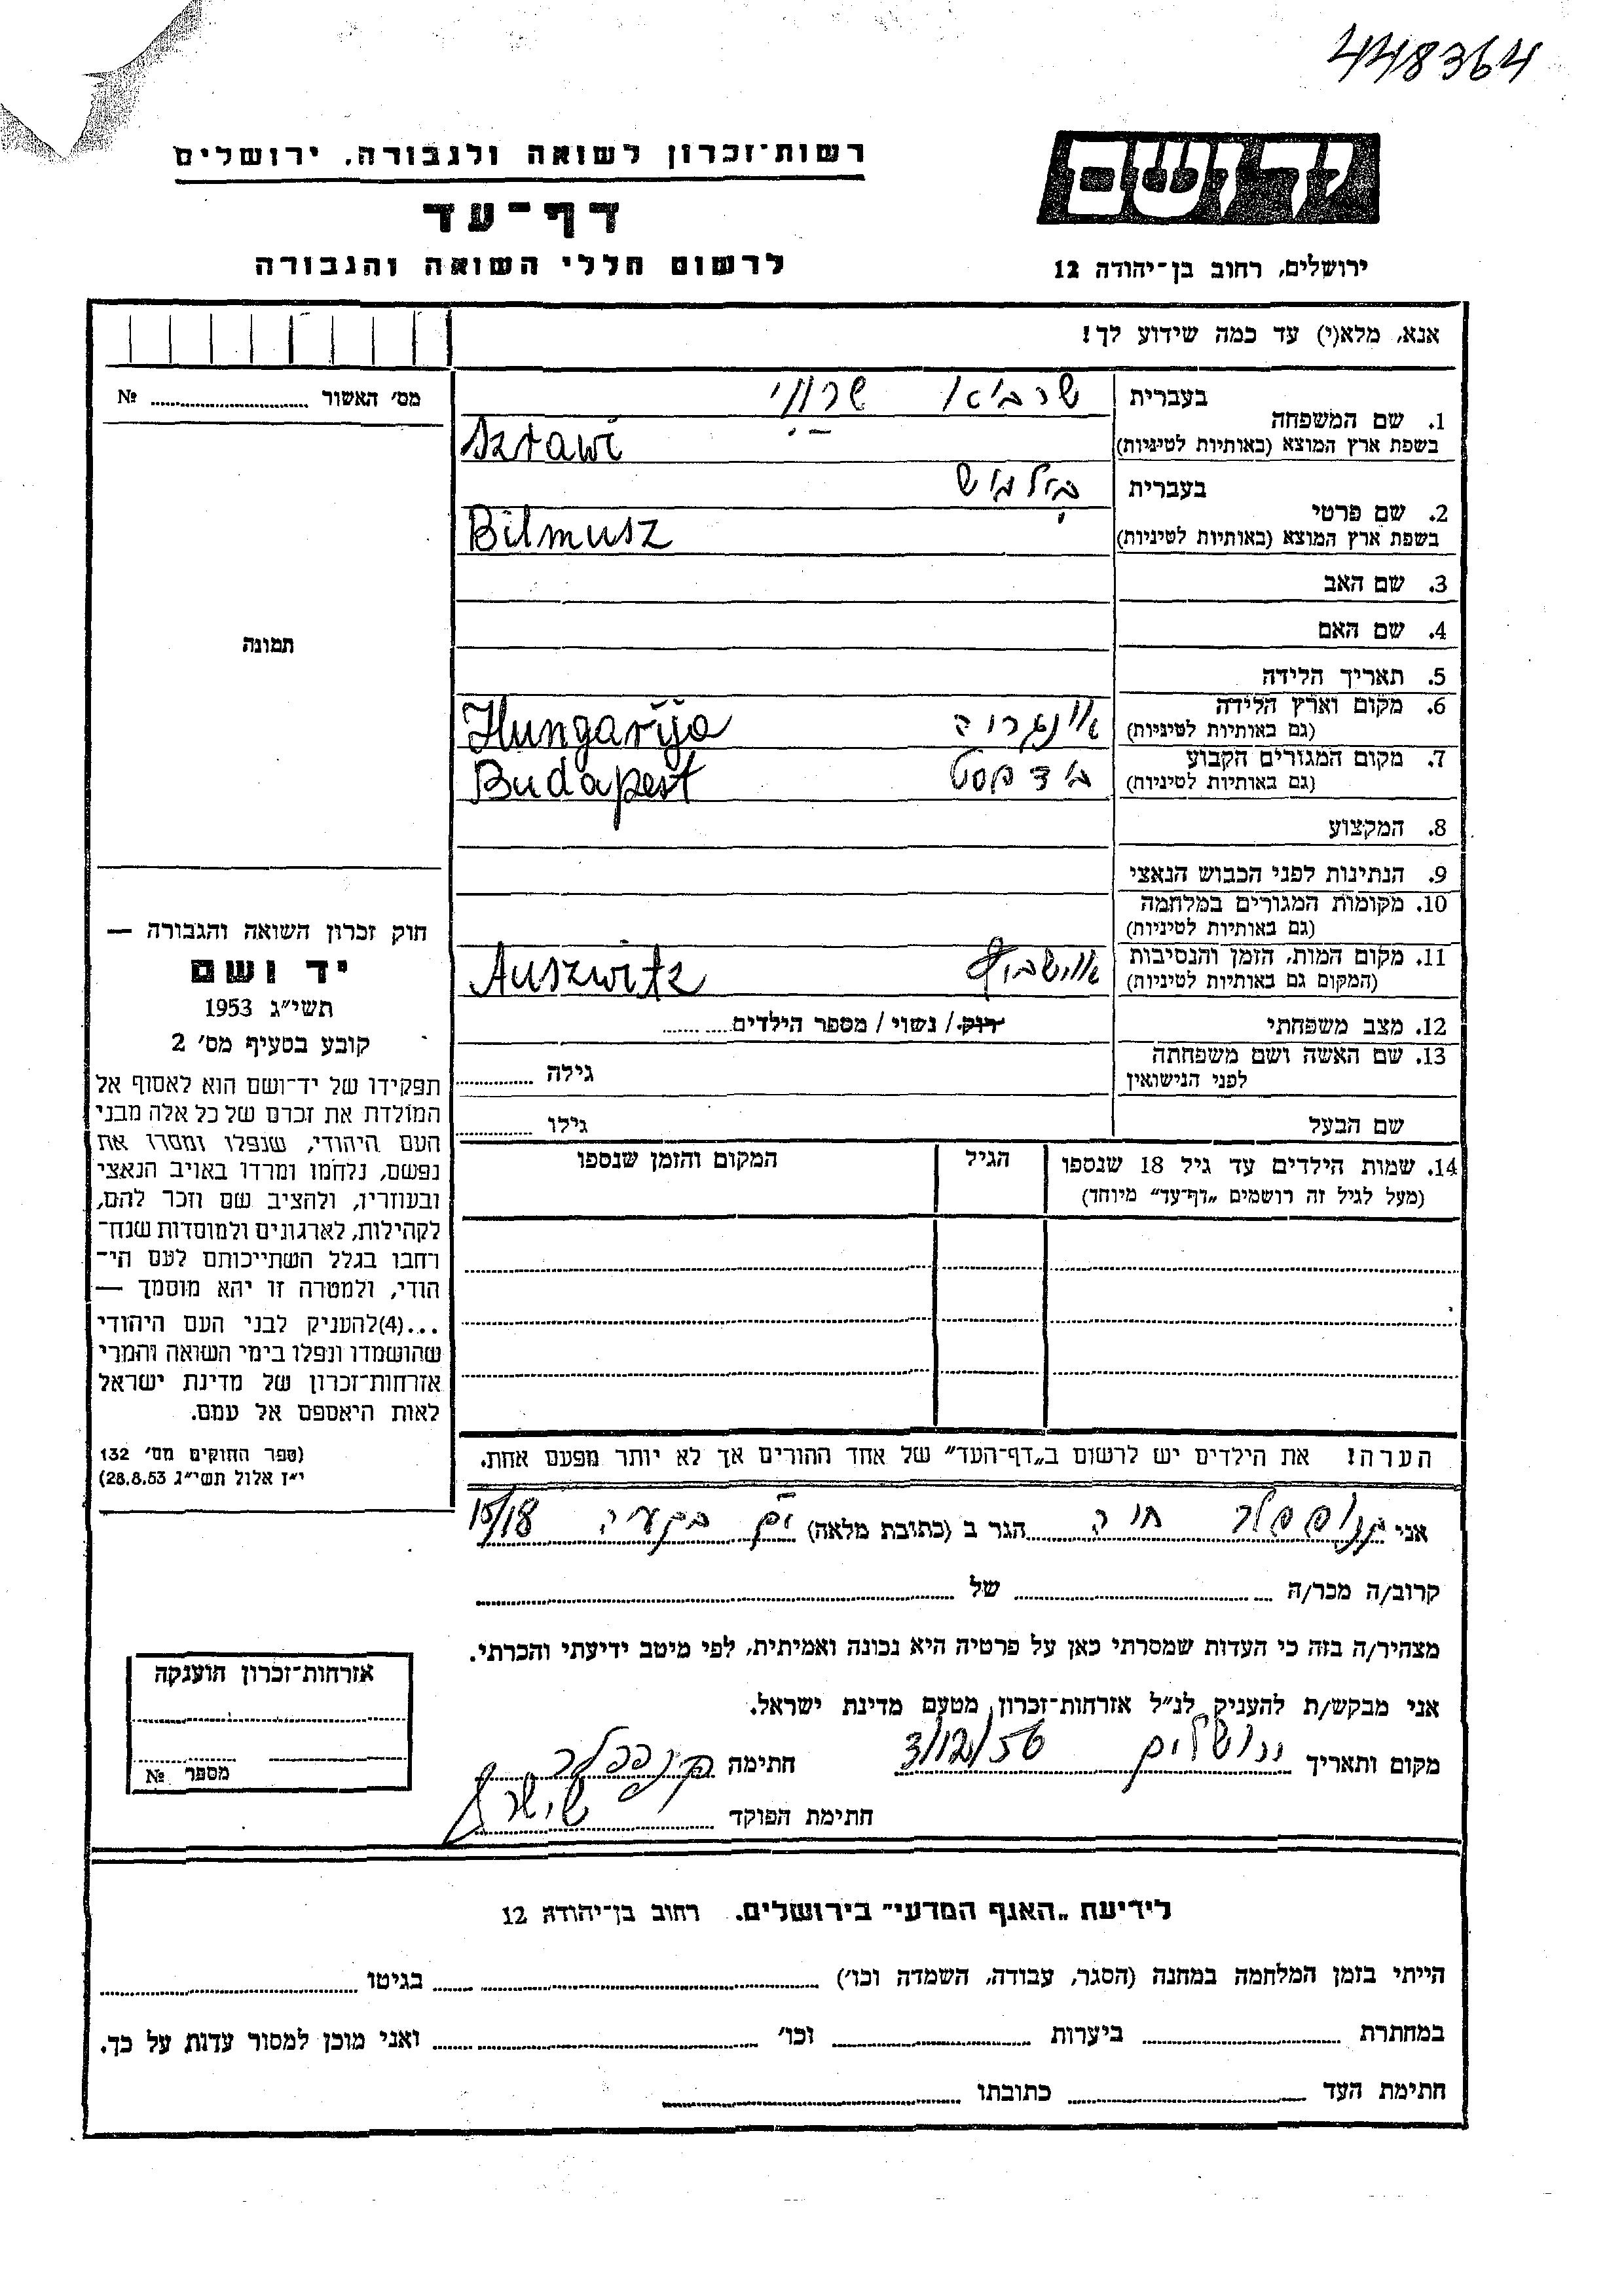 448364
יד ושם
רשות־זכרון לשואה ולגבורה, ירושלים
דף־עד
לרשום חללי השואה והגבורה
ירושלים, רחוב בן־יהודה 12
אנא, מלא(י) עד כמה שידוע לך!
מס׳ האשור № ........
1. שם המשפחה
בעברית
בשפת ארץ המוצא (באותיות לטיניות) Sztawi
2. שם פרטי
בעברית בילמוש
בשפת ארץ המוצא (באותיות לטיניות) Bilmusz
3. שם האב
4. שם האם
5. תאריך הלידה
6. מקום וארץ הלידה אונגריה Hungarija
(גם באותיות לטיניות)
7. מקום המגורים הקבוע בודפסט Budapest
(גם באותיות לטיניות)
8. המקצוע
9. הנתינות לפני הכבוש הנאצי
10. מקומות המגורים במלחמה
(גם באותיות לטיניות)
11. מקום המות, הזמן והנסיבות אוישביץ Auszwitz
(המקום גם באותיות לטיניות)
12. מצב משפחתי רווק / נשוי / מספר הילדים........
13. שם האשה ושם משפחתה
לפני הנישואין גילה ........
שם הבעל גילו ........
14. שמות הילדים עד גיל 18 שנספו
(מעל לגיל זה רושמים „דף־עד” מיוחד)
הגיל
המקום והזמן שנספו
הערה! את הילדים יש לרשום ב„דף־העד” של אחד ההורים אך לא יותר מפעם אחת.
תמונה
חוק זכרון השואה והגבורה —
יד ושם
תשי״ג 1953
קובע בסעיף מס׳ 2
תפקידו של יד־ושם הוא לאסוף אל
המולדת את זכרם של כל אלה מבני
העם היהודי, שנפלו ומסרו את
נפשם, נלחמו ומרדו באויב הנאצי
ובעוזריו, ולהציב שם וזכר להם,
לקהילות, לארגונים ולמוסדות שנח־
רחבו בגלל השתייכותם לעם הי־
הודי, ולמטרה זו יהא מוסמך —
...(4)להעניק לבני העם היהודי
שהושמדו ונפלו בימי השואה והמרי
אזרחות־זכרון של מדינת ישראל
לאות היאספם אל עמם.
(ספר החוקים מס׳ 132
י״ז אלול תשי״ג 28.8.53)
אני חוה הגר ב (כתובת מלאה) ים בקעיה 15/18
קרוב/ה מכר/ה ........ של ........
מצהיר/ה בזה כי העדות שמסרתי כאן על פרטיה היא נכונה ואמיתית, לפי מיטב ידיעתי והכרתי.
אני מבקש/ת להעניק לנ״ל אזרחות־זכרון מטעם מדינת ישראל.
מקום ותאריך ירושלים 3/12/56 חתימה
חתימת הפוקד
אזרחות־זכרון הוענקה
מספר №
לידיעת „האגף המדעי” בירושלים. רחוב בן־יהודה 12
הייתי בזמן המלחמה במחנה (הסגר, עבודה, השמדה וכו׳) ........ בגיטו ........
במחתרת ........ ביערות ........ וכו׳ ........ ואני מוכן למסור עדות על כך.
חתימת העד ........ כתובתו ........